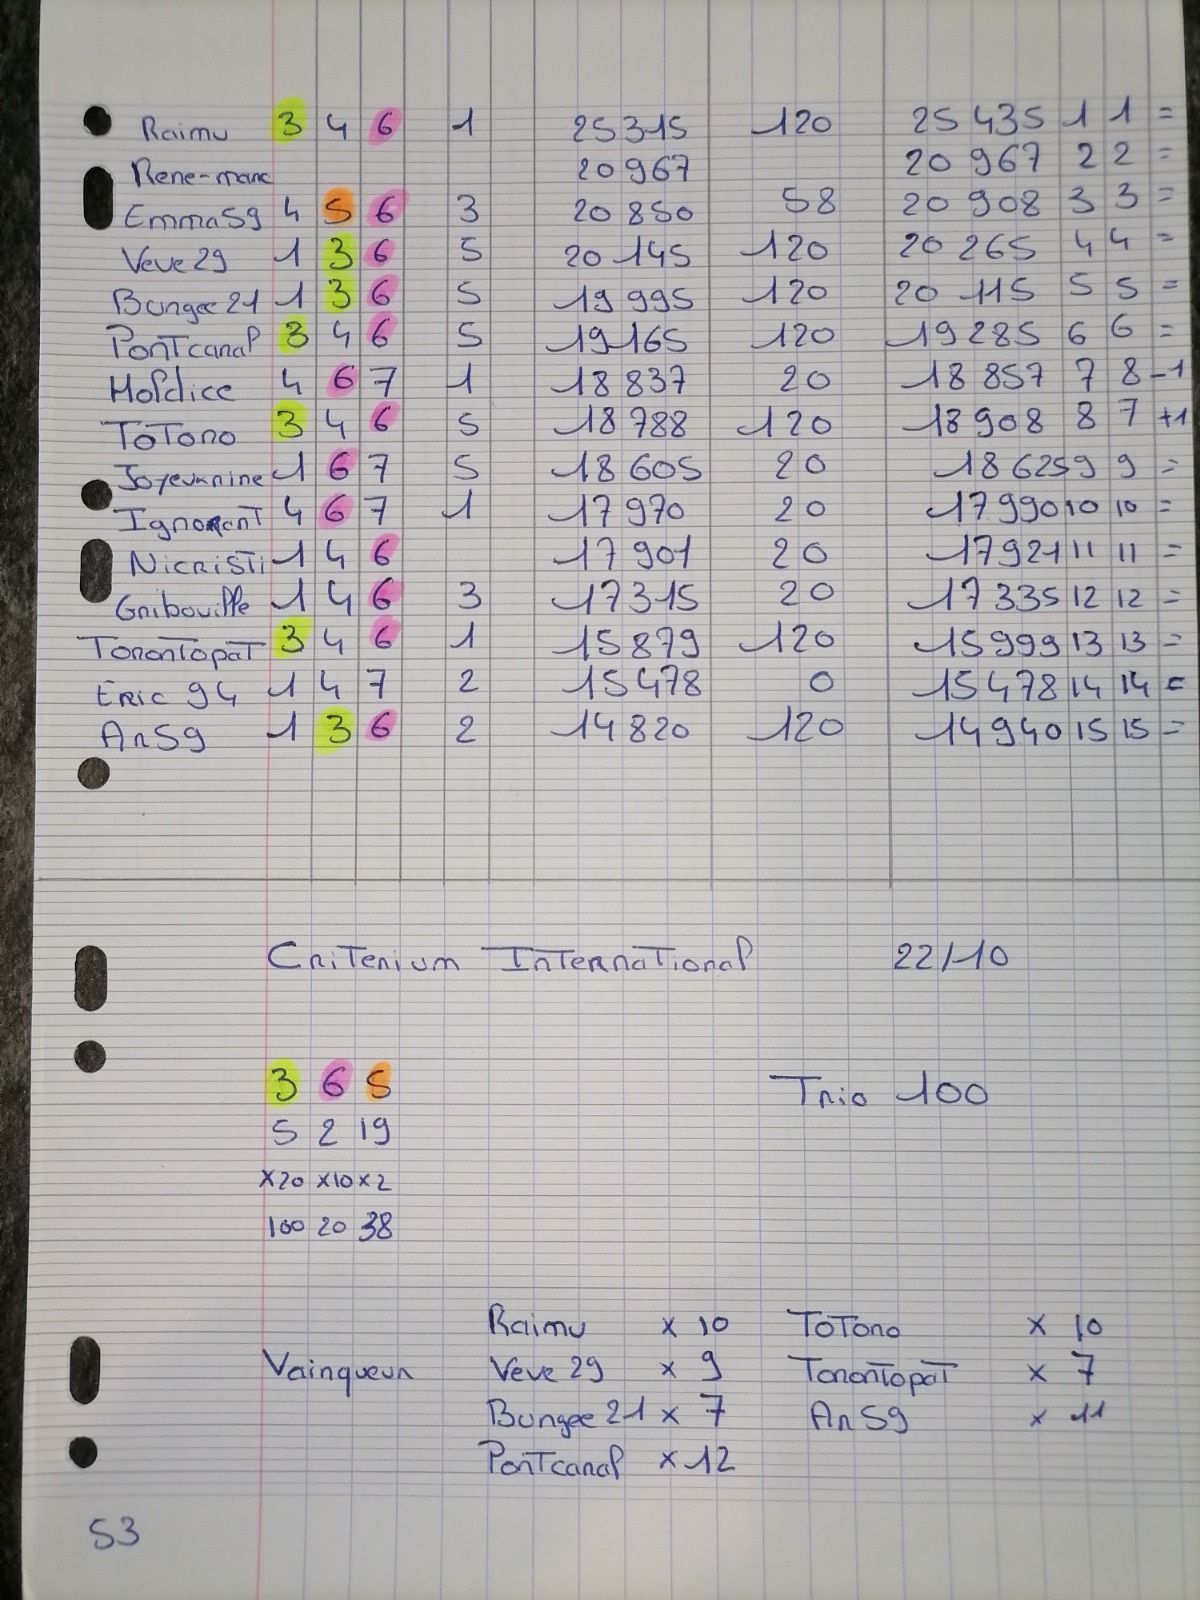 Raimu 3 4 6 1 25 315 120 25 435 1 1 =
Rene-marc 20 967 20 967 2 2 =
Emma59 4 5 6 3 20 850 58 20 908 3 3 =
Veve 29 1 3 6 5 20 145 120 20 265 4 4 =
Bungee 21 1 3 6 5 19 995 120 20 115 5 5 =
Pontcanal 3 4 6 5 19 165 120 19 285 6 6 =
Holdice 4 6 7 1 18 837 20 18 857 7 8 -1
ToTono 3 4 6 5 18 788 120 18 908 8 7 +1
Joyeuxnine 1 6 7 5 18 605 20 18 625 9 9 =
Ignorant 4 6 7 1 17 970 20 17 990 10 10 =
Nicristi 1 4 6 17 901 20 17 921 11 11 =
Gribouille 1 4 6 3 17 315 20 17 335 12 12 =
Torontopat 3 4 6 1 15 879 120 15 999 13 13 =
Eric 94 1 4 7 2 15 478 0 15 478 14 14 =
An59 1 3 6 2 14 820 120 14 940 15 15 =
Criterium International 22/10
3 6 5 Trio 100
5 2 19
x20 x10 x2
100 20 38
Raimu x 10 ToTono x 10
Vainqueur Veve 29 x 9 Torontopat x 7
Bungee 21 x 7 An59 x 11
Pontcanal x 12
53